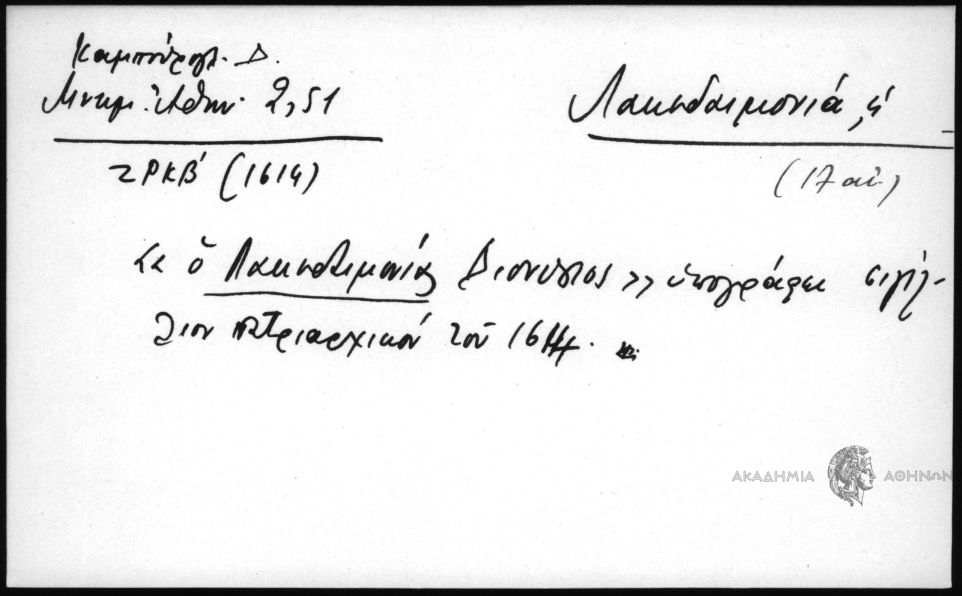 Καμπούρογλ. Δ.
Μνημ. Ἀθην. 2,51
Λακεδαιμονιά, ἡ
ΖΡΚΒ́ (1614)
(17 αἰ.)
«ὁ Λακεδαιμονίας Διονύσιος» ὑπογράφει σιγίλ-
λιον πατριαρχικόν τοῦ 1614.
ΑΚΑΔΗΜΙΑ ΑΘΗΝΩΝ